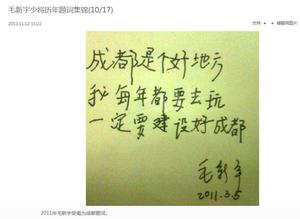 毛新宇少将历年题词集锦(10/17)
2013.11.12 11:22
成都是个好地方
我每年都要去玩
一定要建设好成都
毛新宇
2011.3.5
2011年毛新宇受邀为成都题词。